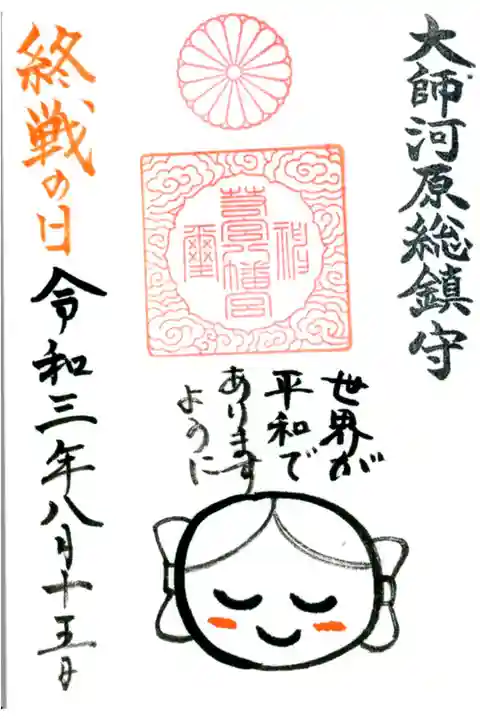 大師河原総鎮守
世界が
平和で
あります
ように
終戦の日
令和三年八月十五日